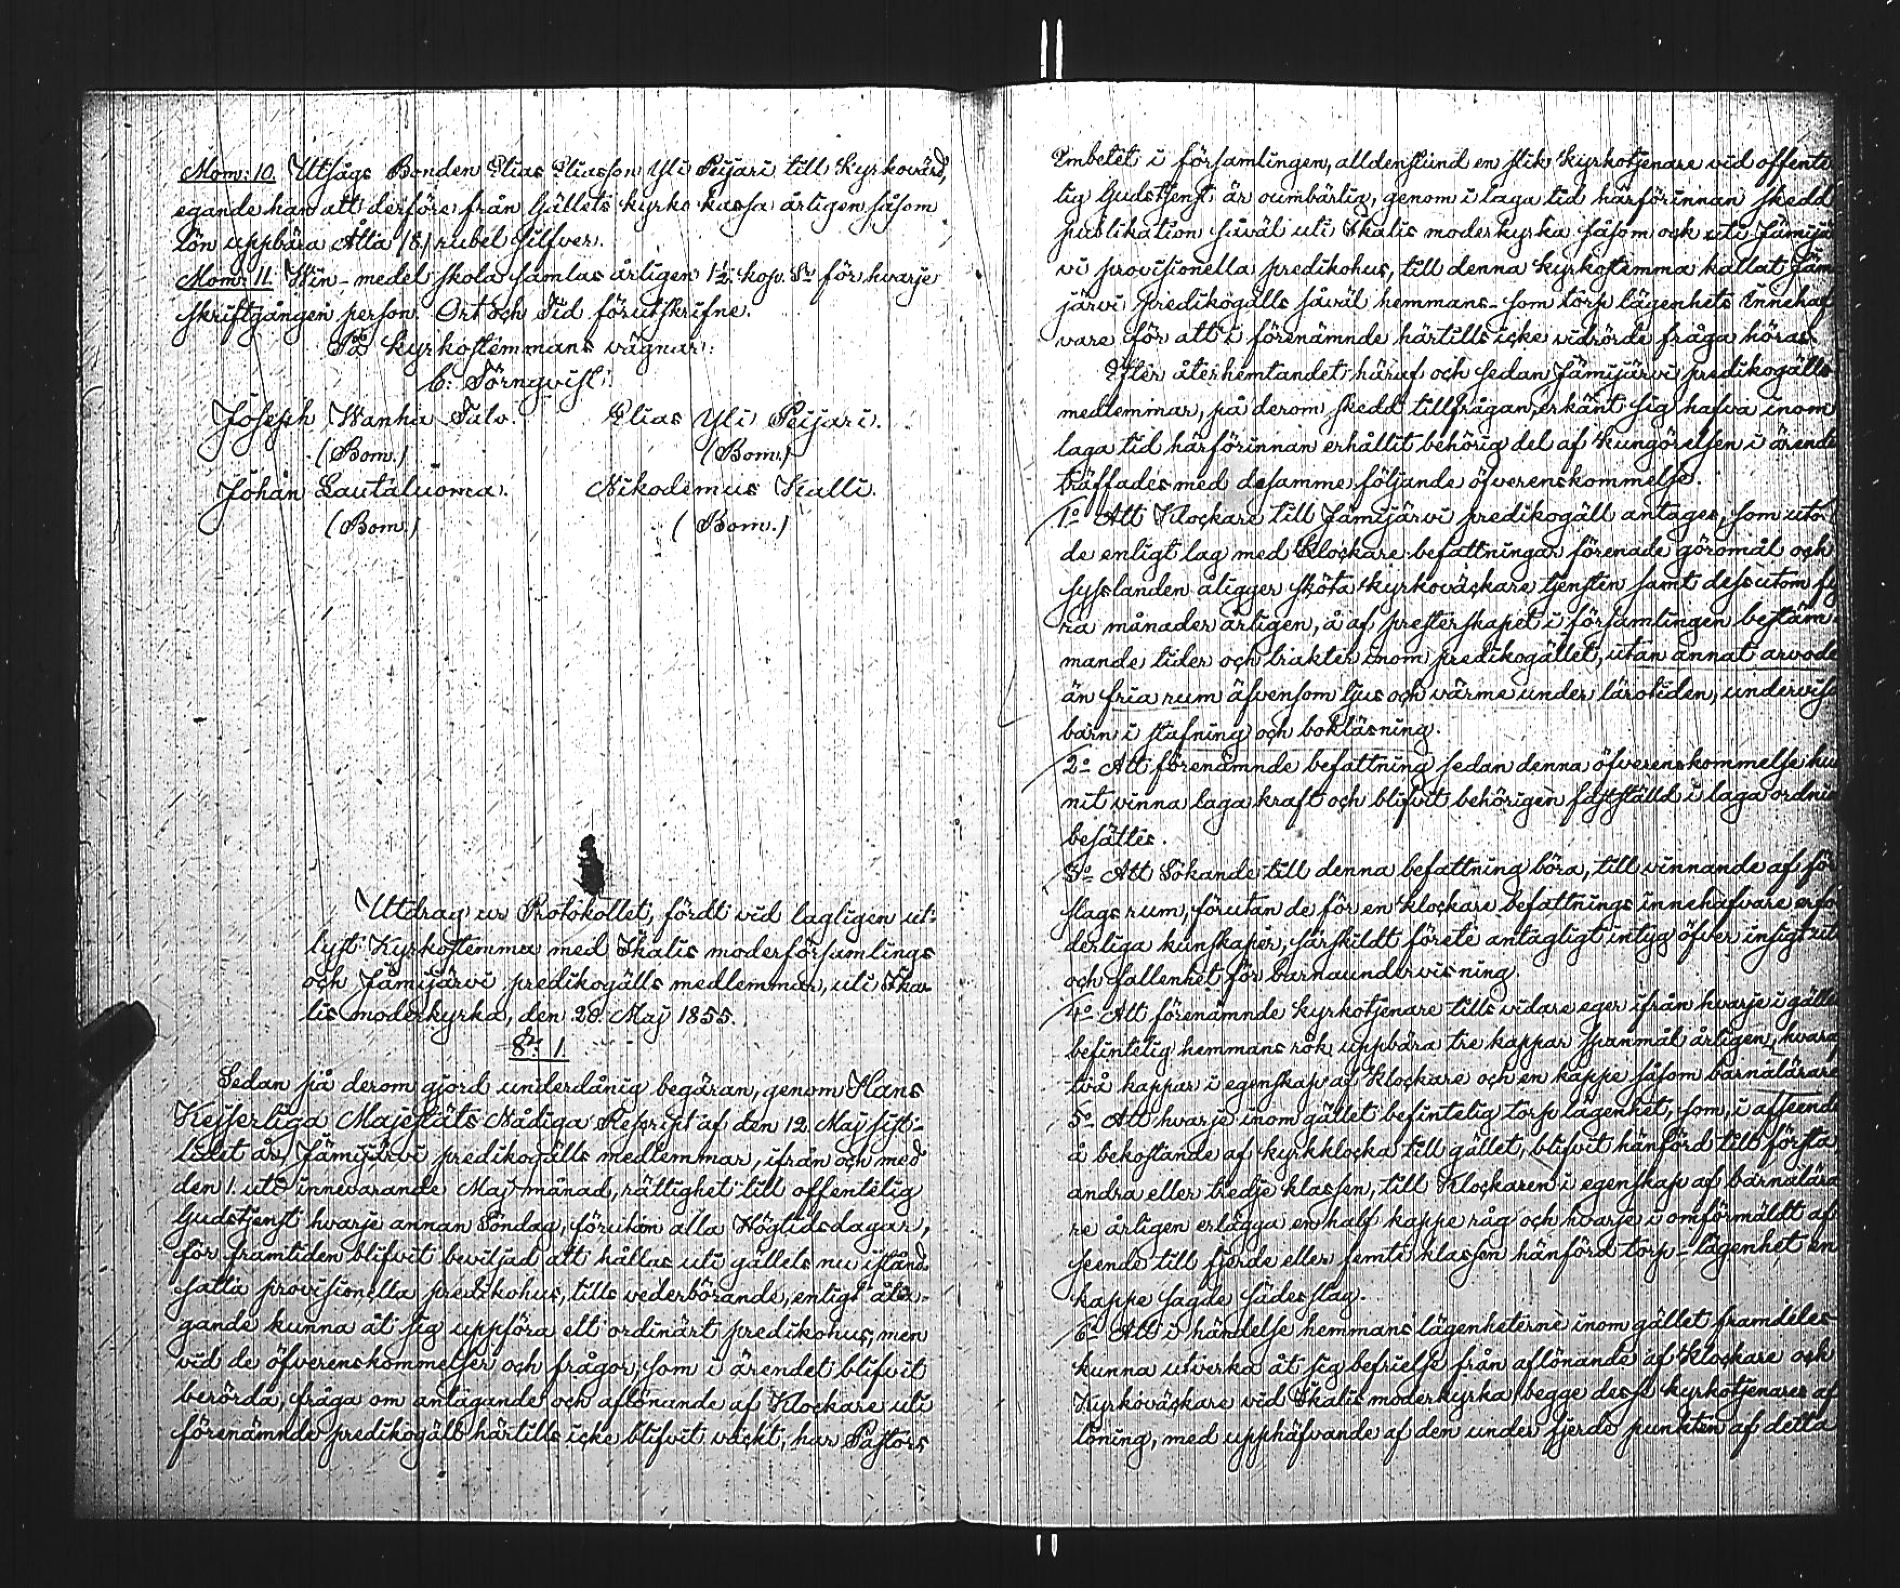 Mom: 10. Utsågs Bonden Elias Eliasson Yli Peijari till Kyrkovärd,
egande han att derföre från Gällets kyrko kassa årligen såsom
lön uppbära Åtta (8) rubel silfver.
Mom: 11. Win-medel skola samlas årligen 1½ kop. Sr för hvarje
skriftgången person. Ort och Tid förutskrifne.
På Kyrkostemmans vägnar:
C: Törnqvist.
Joseph Wanha Salo. Elias Yli Peijari.
(Bom.) (Bom.)
Johan Lautaluoma. Nikodemus Kalli.
(Bom.) (Bom.)
Utdrag ur Protokollet, fördt vid lagligen ut-
lyst Kyrkostemma med Ikalis moderförsamlings
och Jämijärvi predikogälls medlemmar, uti Ika-
lis moderkyrka, den 28. Maj 1855.
§ 1
Sedan på derom gjord underdånig begäran, genom Hans
Kejserliga Majestäts Nådiga Rescript af den 12. Maj sist-
lidet år, Jämijärvi predikogälls medlemmar, ifrån och med
den 1. uti innevarande Maj månad, rättighet till offentelig
Gudstjenst hvarje annan Söndag, förutom alla Högtidsdagar,
för framtiden blifvit beviljad att hållas uti gällets nu istånd
satta provisionella predikohus, tills vederbörande, enligt åta-
gande kunna åt sig uppföra ett ordinärt predikohus; men
vid de öfverenskommelser och frågor, som i ärendet blifvit
berörda, fråga om antagande och aflönande af Klockare uti
förenämnde predikogäll härtills icke blifvit väckt, har Pastors
Embetet i församlingen, alldenstund en slik kyrkotjenare vid offente
lig Gudstjenst är oumbärlig, genom i laga tid härförinnan skedd
publikation såväl uti Ikalis moderkyrka såsom ock uti Jämijär
vi provisionella predikohus, till denna kyrkostemma kallat Jämi
järvi predikogälls såväl hemmans- som torp lägenhets innehaf
vare för att i förenämnde härtills icke vidrörde fråga höras.
Efter återhemtandet häraf och sedan Jämijärvi predikogälls
medlemmar, på derom skedd tillfrågan, erkänt sig hafva inom
laga tid härförinnan erhållit behörig del af kungörelsen i ärende
träffades med desamme följande öfverenskommelse.
1o Att Klockare till Jämijärvi predikogäll antages, som utö
de enligt lag med Klockare befattningar förenade göromål och
sysslanden åligger sköta kyrkoväckare tjensten samt dessutom fy
ra månader årligen, å af presterskapet i församlingen bestäm-
mande tider och trakter inom predikogället, utan annat arvode
än fria rum äfvensom ljus och värme under lärotiden, undervisa
barn i stafning och bokläsning.
2o Att förenämnde befattning sedan denna öfverenskommelse hun
nit vinna laga kraft och blifvit behörigen fastställd i laga ordnin
besättes.
3o Att Sökande till denna befattning böra, till vinnande af för
slags rum, förutan de för en klockare befattnings innehafvare erfo
derliga kunskaper, särskildt förete antagligt intyg öfver insigt uti
och fallenhet för barnaundervisning.
4o Att förenämnde kyrkotjenare tills vidare eger ifrån hvarje i gället
befintelig hemmans rök uppbära tre kappar spanmål årligen, hvaraf
två kappar i egenskap af Klockare och en kappe såsom barnalärare
5o Att hvarje inom gället befintelig torp lägenhet, som, i afseende
å bekostande af kyrkklocka till gället, blifvit hänförd till första
andra eller tredje klassen, till Klockaren i egenskap af barnalära
re årligen erlägga en half kappe råg och hvarje i omförmäldt af
seende till fjerde eller femte klassen hänförd torp-lägenhet en
kappe sagde sädesslag.
6o Att i händelse hemmans lägenheterne inom gället framdeles
kunna utverka åt sig befrielse från aflönande af Klockare och
Kyrkoväckare vid Ikalis moderkyrka begge desse kyrkotjenares af
löning, med upphäfvande af den under fjerde punkten af detta